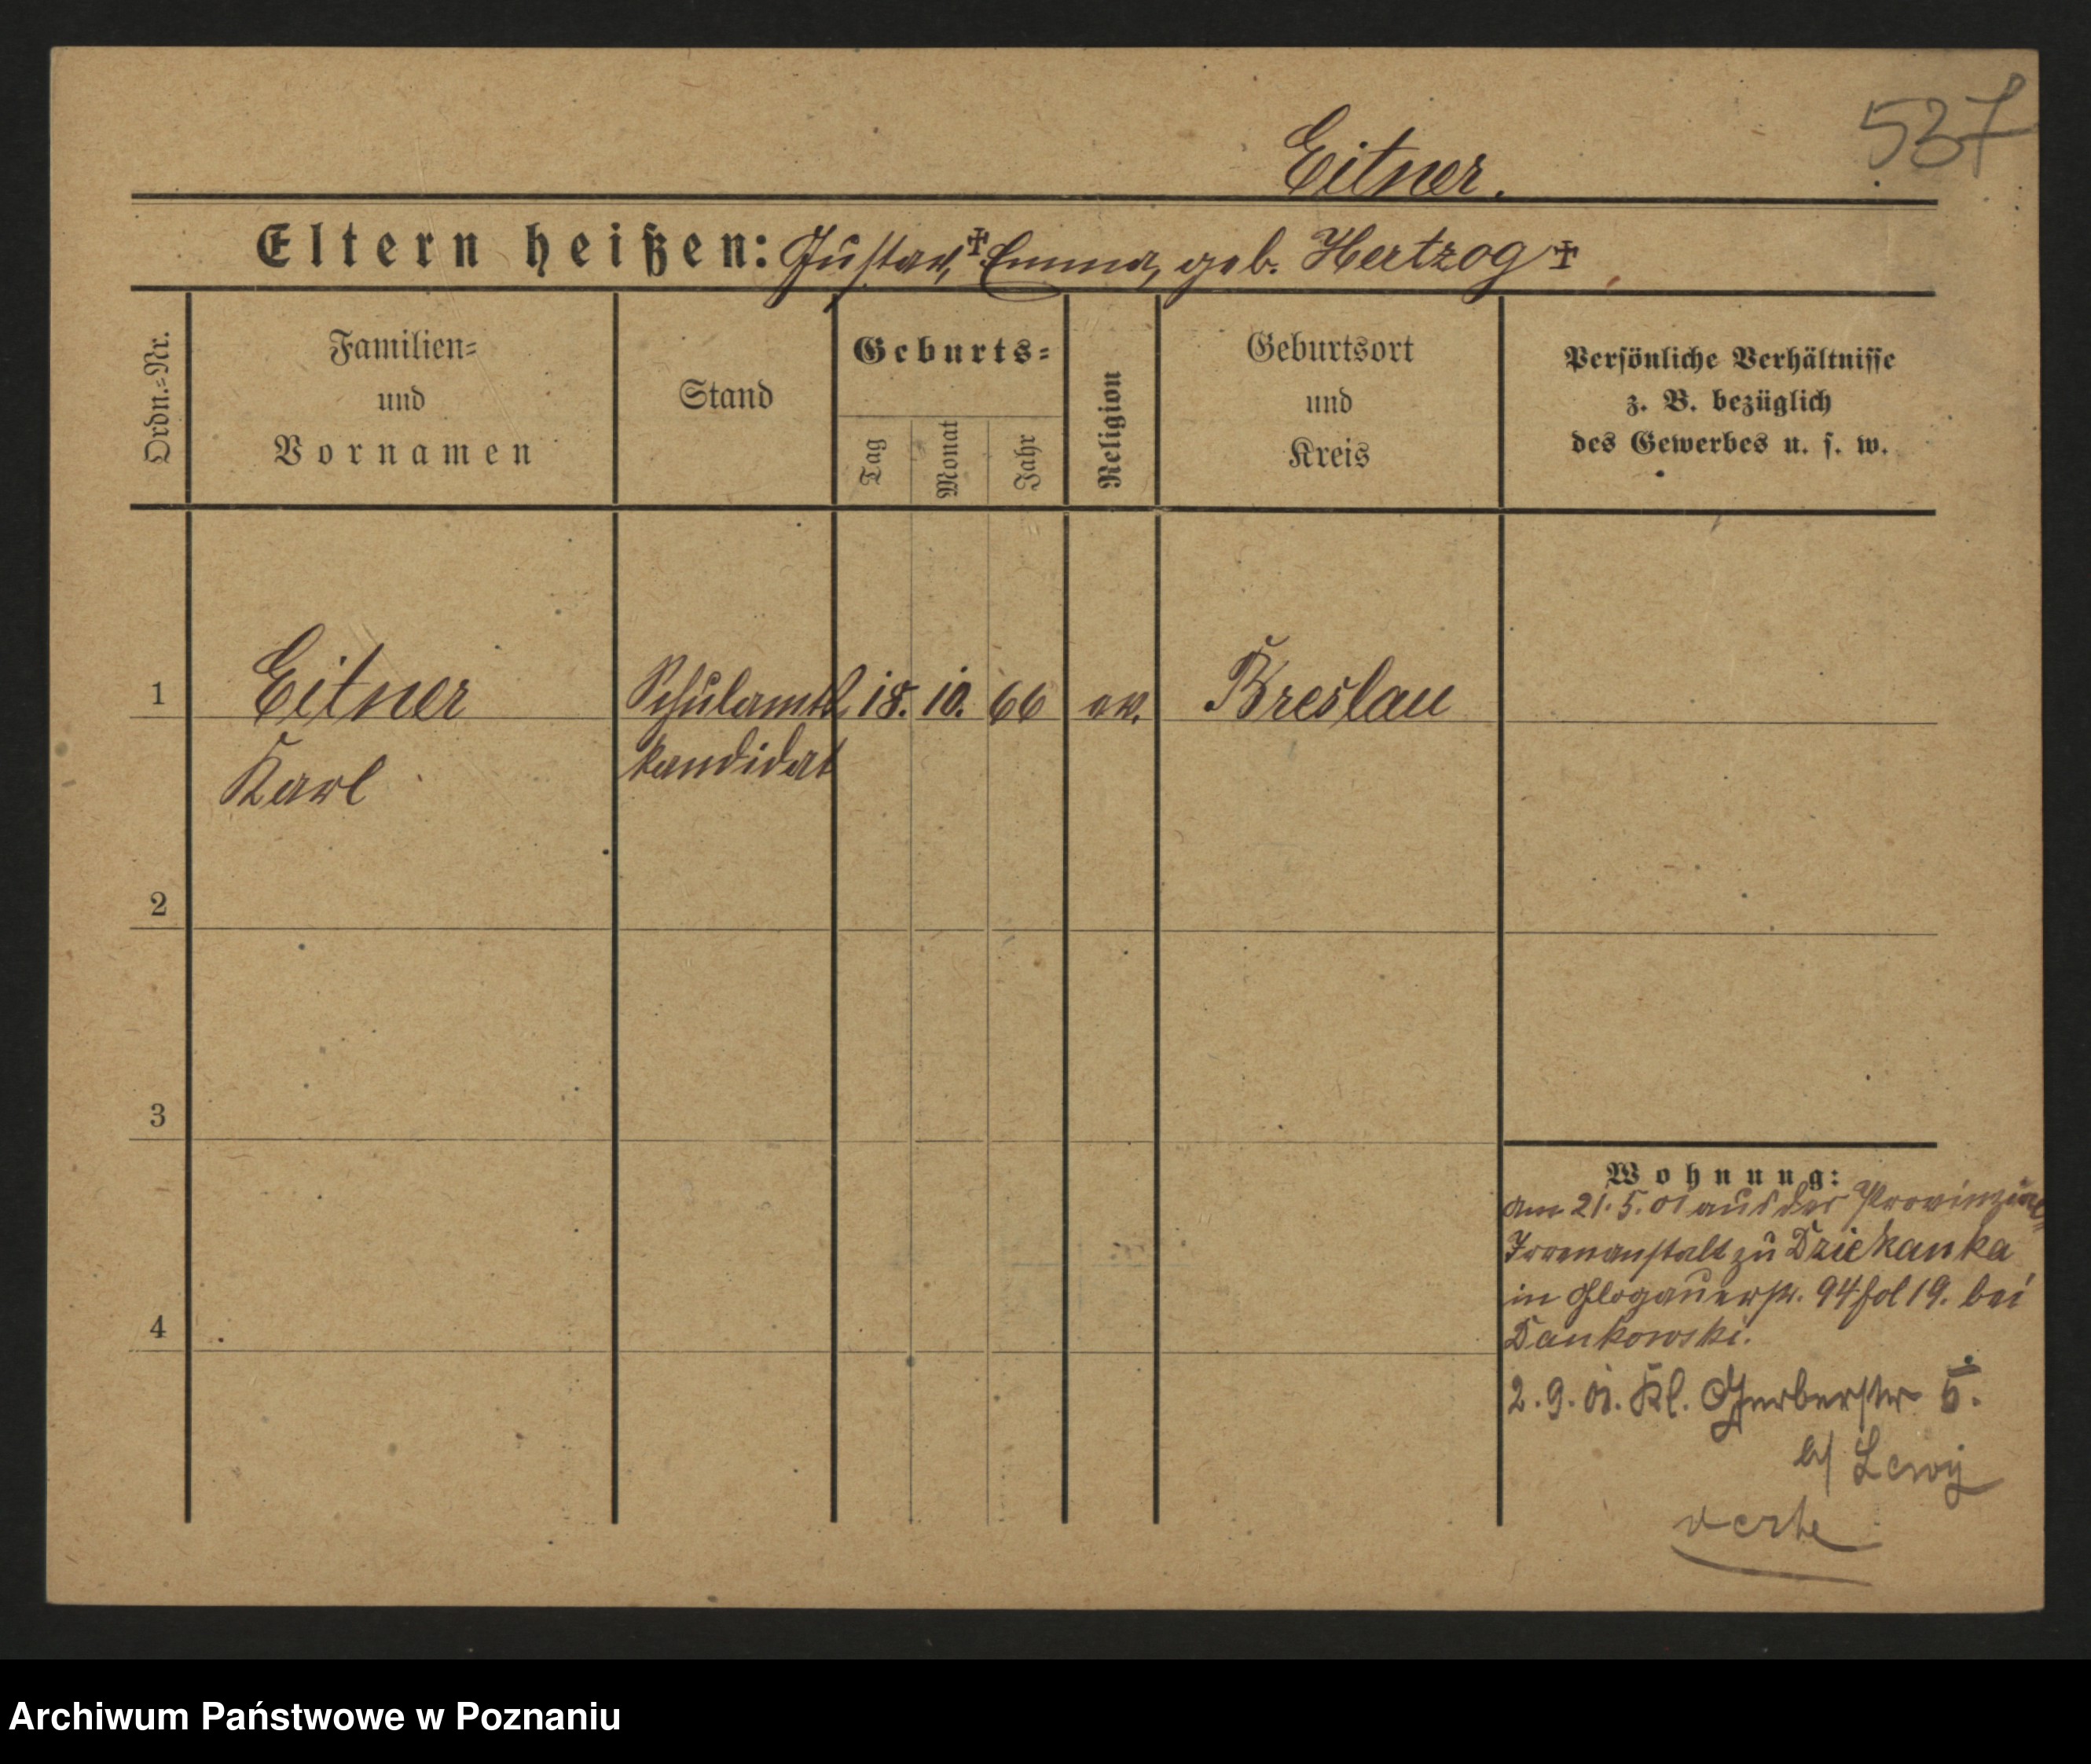 537
Eitner.
Eltern heißen: Gustav,✝ Emma, geb. Hertzog ✝
Ordn.=Nr.
Familien=
und
Vornamen
Stand
Geburts=
Tag
Monat
Jahr
Religion
Geburtsort
und
Kreis
Persönliche Verhältnisse
z. B. bezüglich
des Gewerbes u. s. w.
1 Eitner Schulamts 18. 10. 66 ev. Breslau
Karl kandidat
2
3
4
Wohnung:
am 21.5.01 aus der Provinzial=
Irrenanstalt zu Dziekanka
in Glogauerstr. 94 fol 19. bei
Dankowski.
2.9.01. Kl. Gerberstr 5.
b/ Lewy
verte
Archiwum Państwowe w Poznaniu